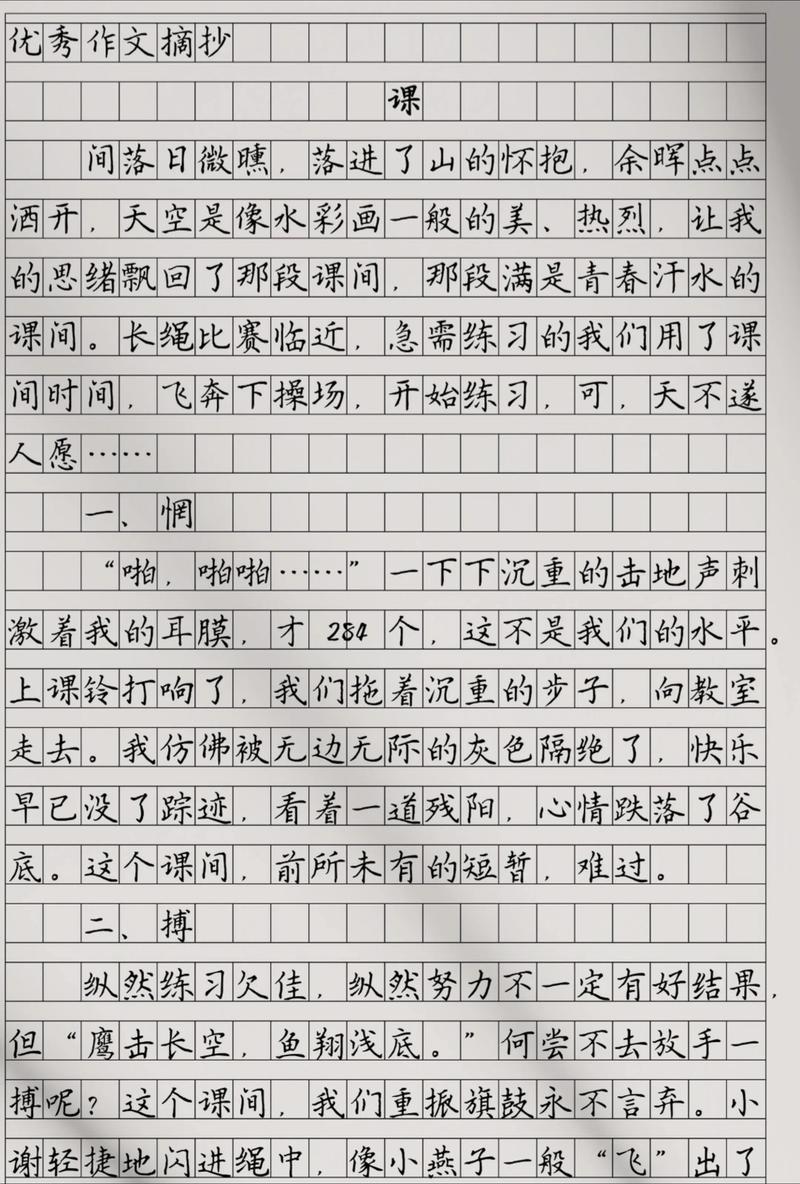 优秀作文摘抄
课
间落日微曛，落进了山的怀抱，余晖点点
洒开，天空是像水彩画一般的美、热烈，让我
的思绪飘回了那段课间，那段满是青春汗水的
课间。长绳比赛临近，急需练习的我们用了课
间时间，飞奔下操场，开始练习，可，天不遂
人愿……
一、惘
“啪，啪啪……”一下下沉重的击地声刺
激着我的耳膜，才284个，这不是我们的水平。
上课铃打响了，我们拖着沉重的步子，向教室
走去。我仿佛被无边无际的灰色隔绝了，快乐
早已没了踪迹，看着一道残阳，心情跌落了谷
底。这个课间，前所未有的短暂，难过。
二、搏
纵然练习欠佳，纵然努力不一定有好结果，
但“鹰击长空，鱼翔浅底。”何尝不去放手一
搏呢？这个课间，我们重振旗鼓永不言弃。小
谢轻捷地闪进绳中，像小燕子一般“飞”出了